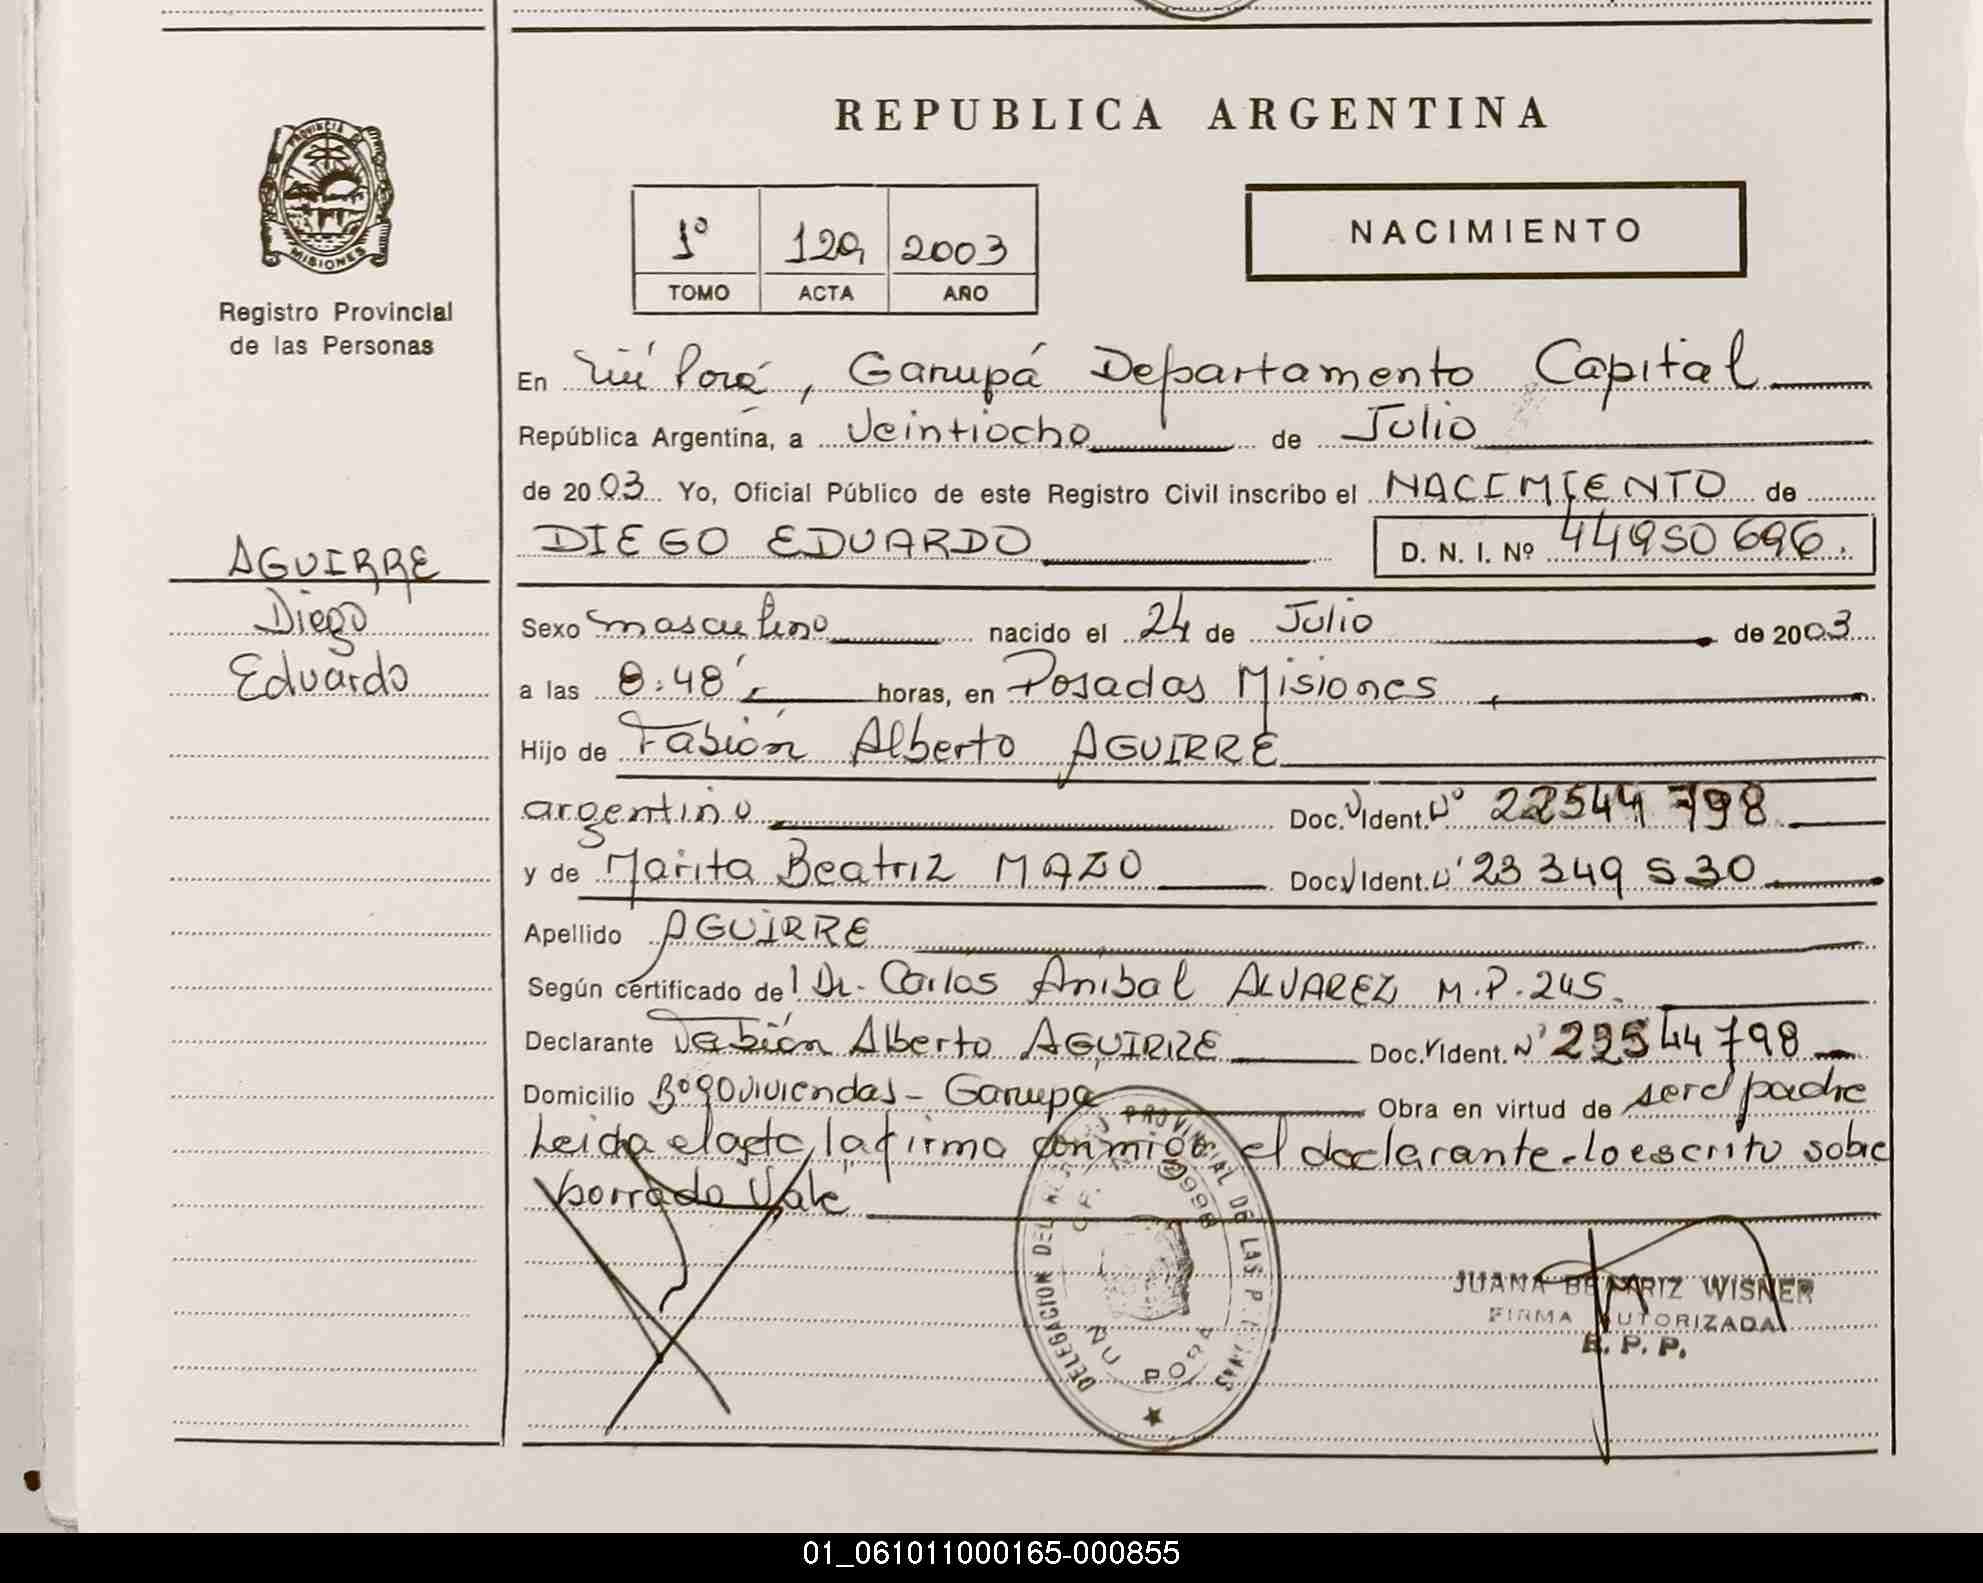 REPUBLICA ARGENTINA
PROVINCIA DE MISIONES
Registro Provincial
de las Personas
1º 129 2003
TOMO ACTA AÑO
NACIMIENTO
En Ñu Porá, Garupá Departamento Capital
República Argentina, a Veintiocho de Julio
de 2003 Yo, Oficial Público de este Registro Civil inscribo el NACIMIENTO de
DIEGO EDUARDO D. N. I. Nº 44950696.
AGUIRRE
Diego
Eduardo
Sexo masculino nacido el 24 de Julio de 2003
a las 8:48' horas, en Posadas Misiones
Hijo de Fabián Alberto AGUIRRE
argentino Doc. Ident. Nº 22544798
y de Marita Beatriz MAZO Doc. Ident. Nº 23 349 530
Apellido AGUIRRE
Según certificado del Dr. Carlos Anibal ALVAREZ M.P. 245.
Declarante Fabián Alberto AGUIRRE Doc. Ident. Nº 22544798
Domicilio Bº 90 viviendas - Garupá Obra en virtud de ser el padre
Leida el acta, la firma conmigo el declarante - lo escrito sobre
borrado Vale
DELEGACION DEL REGISTRO PROVINCIAL DE LAS PERSONAS
ÑU PORA
JUANA BEATRIZ WISNER
FIRMA AUTORIZADA
R. P. P.
01_061011000165-000855